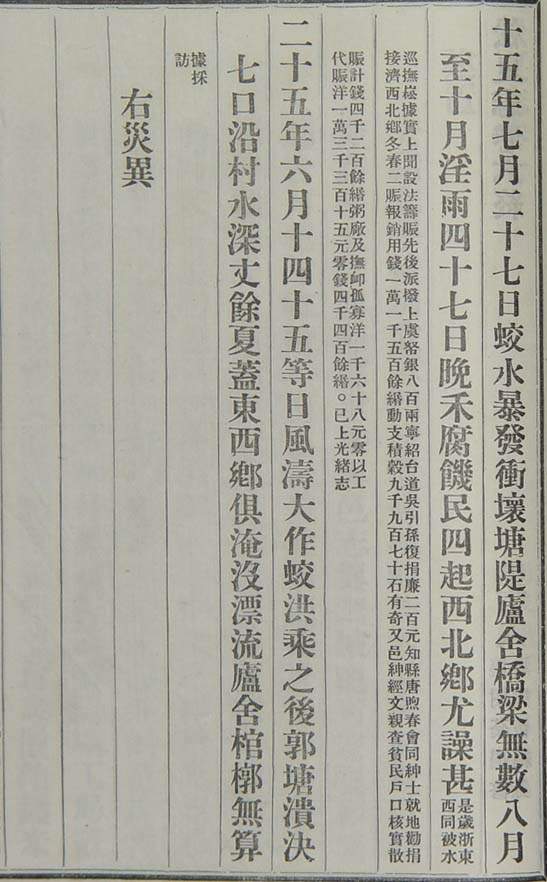 十五年七月二十七日蛟水暴發衝壞塘隄廬舍橋梁無數八月
至十月淫雨四十七日晚禾腐饑民四起西北鄉尤譟甚
是歲浙東
西同被水
巡撫崧據實上聞設法籌賑先後派撥上虞帑銀八百兩寧紹台道吳引孫復捐廉二百元知縣唐煦春會同紳士就地勸捐
接濟西北鄉冬春二賑報銷用錢一萬一千五百餘緡動支積穀九千九百七十石有奇又邑紳經文親查貧民戶口核實散
賑計錢四千二百餘緡粥廠及撫卹孤寡洋一千六十八元零以工
代賑洋一萬三千三百十五元零錢四千四百餘緡。已上光緒志
二十五年六月十四十五等日風濤大作蛟洪乘之後郭塘潰決
七口沿村水深丈餘夏蓋東西鄉俱淹沒漂流廬舍棺槨無算
據採
訪
右災異